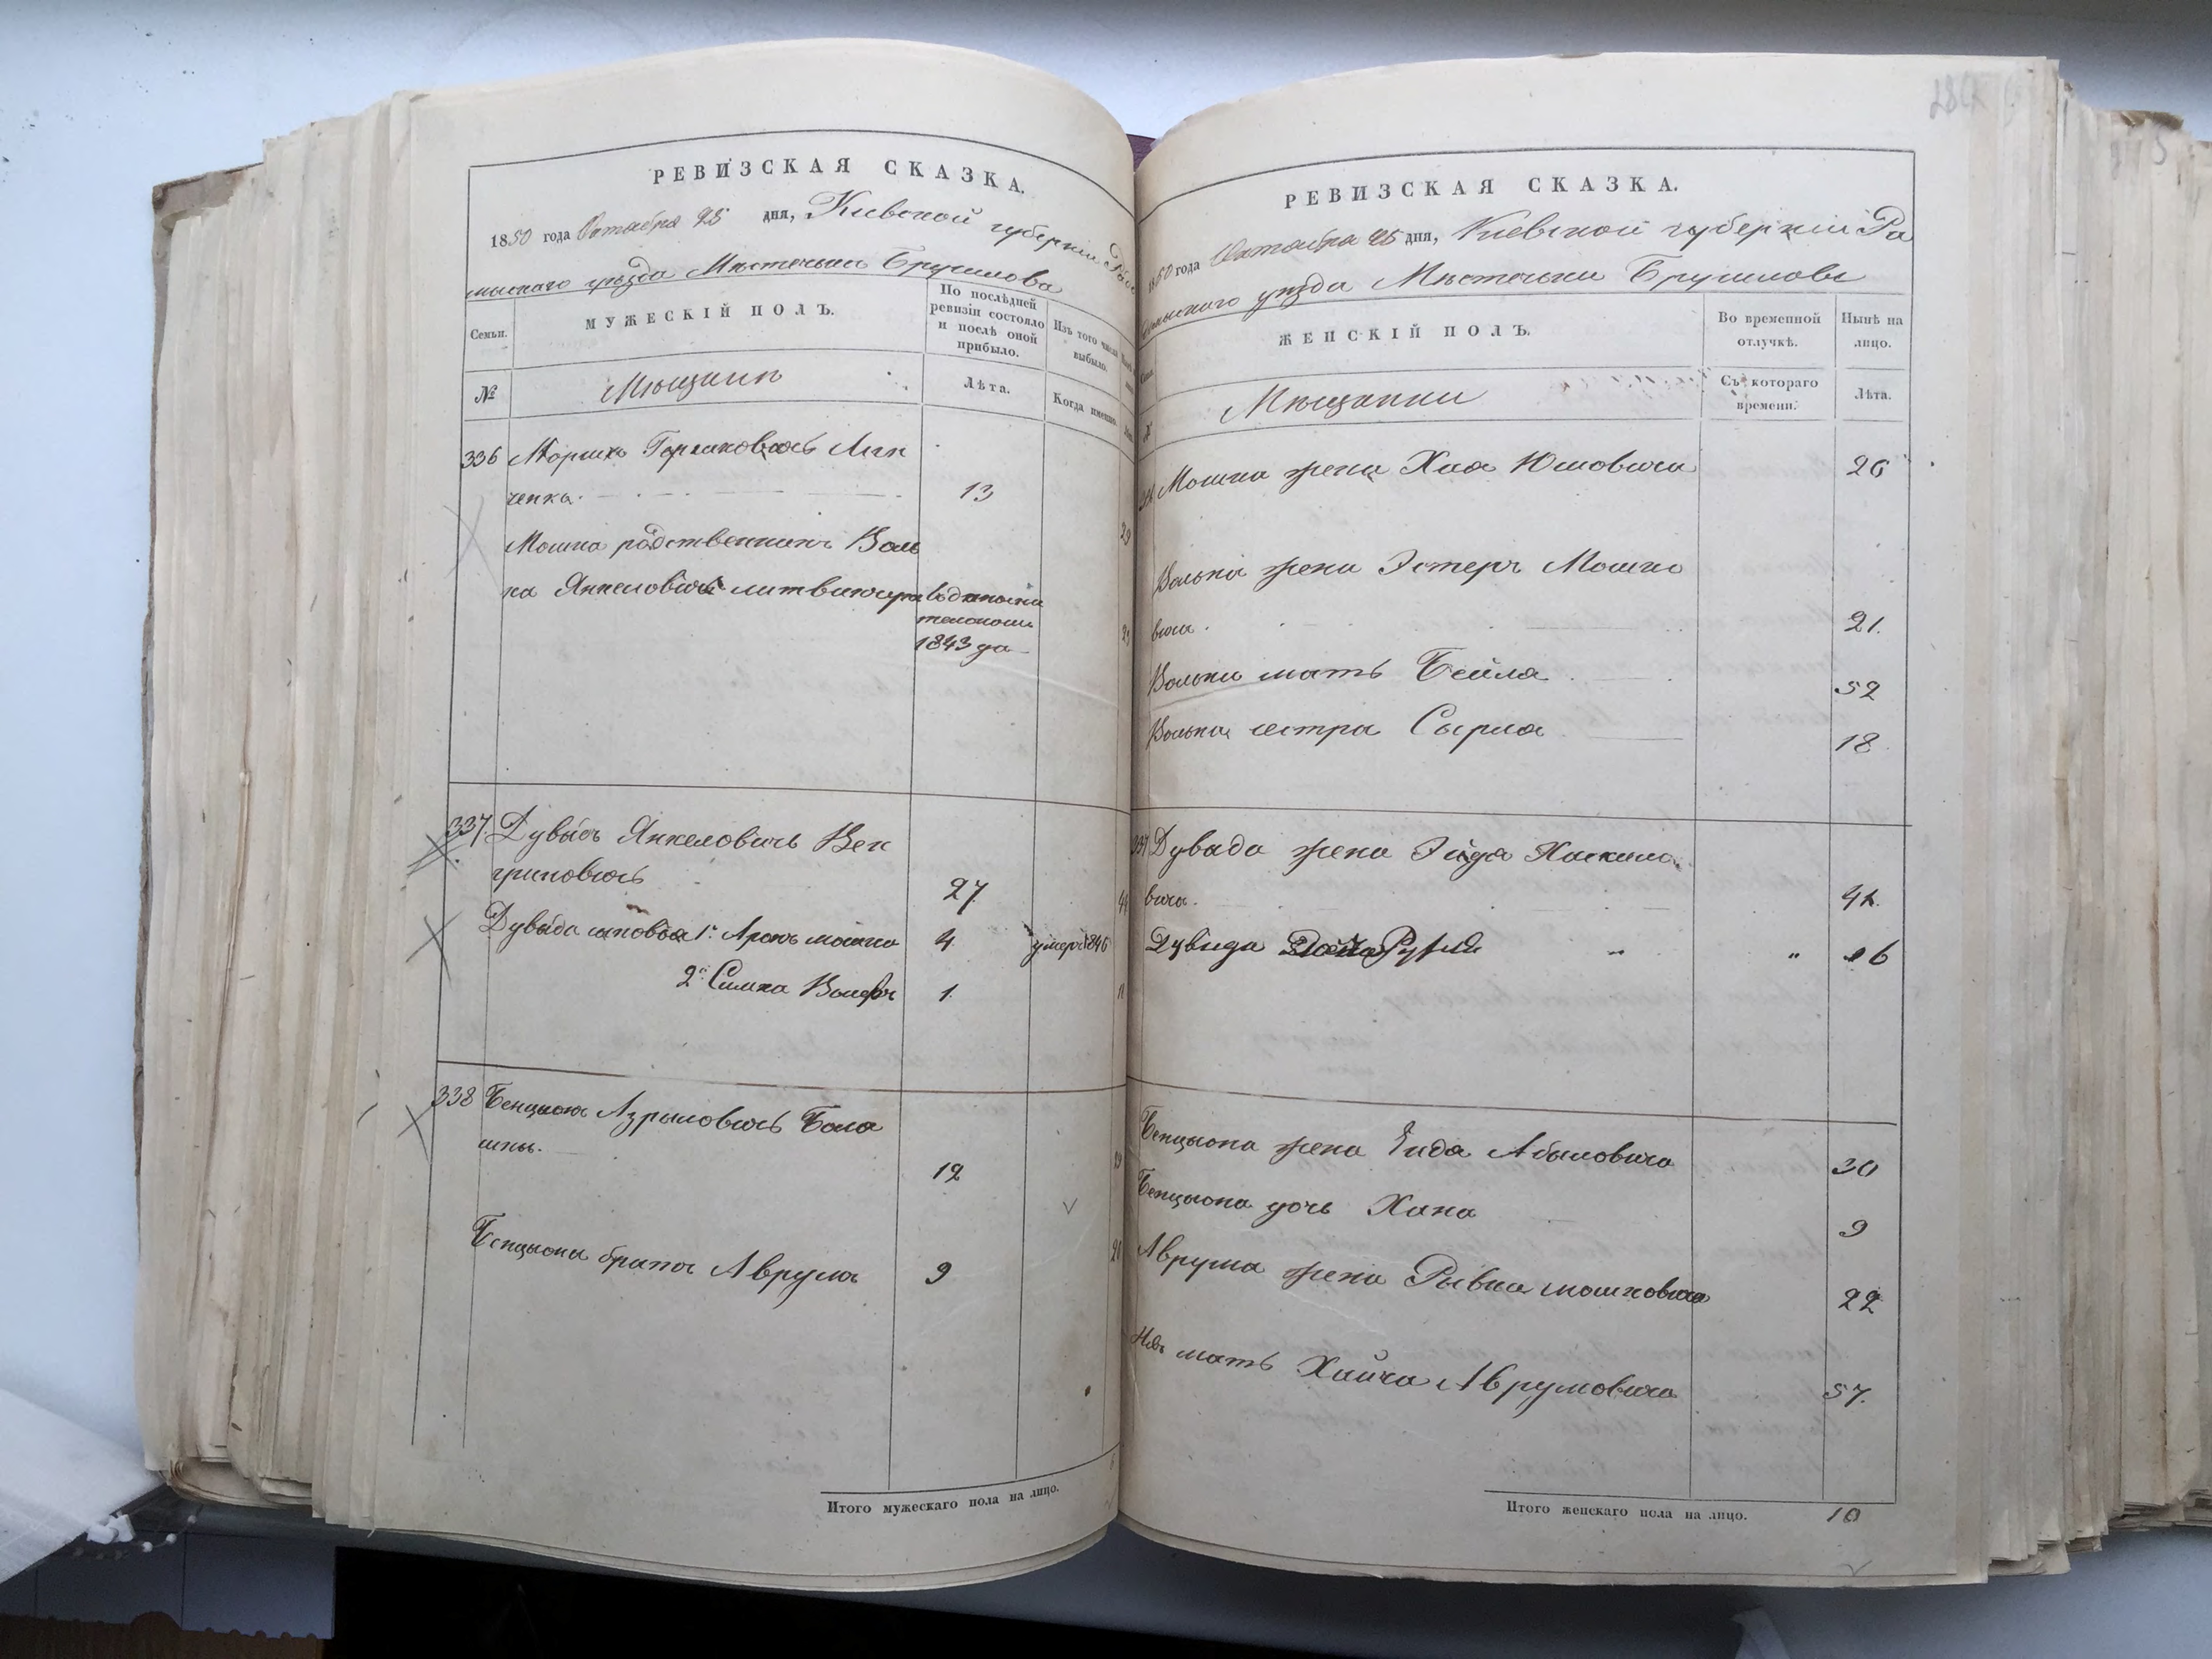 РЕВИЗСКАЯ СКАЗКА.
1850 года Октября 25 дня, Киевской губернии Радо
мыского уезда Местечька Брусилова
Семьи.
МУЖЕСКІЙ ПОЛЪ.
По послѣдней ревизіи состояло и послѣ оной прибыло.
Изъ того числа выбыло.
№
Мещане
Лѣта.
Когда именно.
336
Гершковичь
ченка.
13
Мошка родственникъ Воль
ка Янкелевичь
1843 го
29
337.
Дувидъ Янкеловичь Вен
гриновичь
27
Дувида сыновья 1й Аронъ мошко
4
умеръ 1846
2й Симха Волефъ
1.
11
338
Бенцыонъ Азрыловичь Бала
шны.
12
Бенцыона братъ Аврумъ
9
21
Итого мужескаго пола на лицо.
РЕВИЗСКАЯ СКАЗКА.
1850 года Октября 25 дня, Киевской губерніи Ра
домыского уезда Местечьки Брусилова
ЖЕНСКІЙ ПОЛЪ.
Во временной отлучкѣ.
Нынѣ на лицо.
№
Мещанки
Съ котораго времени.
Лѣта.
Мошка жена Хая Юшовича
26
Волька жена Эстеръ Мошко
вича.
21.
Вольки мать Бейла
52
Волька сестра Сырла
18
337
Дувида жена Эйдя Хаскило
вича.
Дувида
" "
16
Бенцыона жена Абыловича
30
Бенцыона дочь Хана
9
Аврума жена Рывка мошковича
22
Ихъ мать Хайча Аврумовича
57.
Итого женскаго пола на лицо.
10